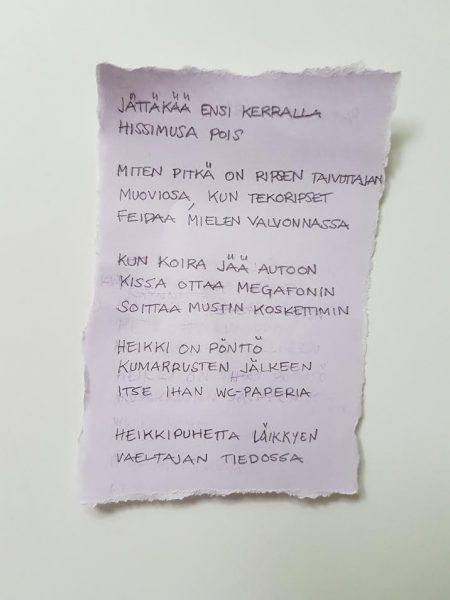 JÄTTÄKÄÄ ENSI KERRALLA
HISSIMUSA POIS
MITEN PITKÄ ON RIPSEN TAIVUTTAJAN
MUOVIOSA, KUN TEKORIPSET
FEIDAA MIELEN VALVONNASSA
KUN KOIRA JÄÄ AUTOON
KISSA OTTAA MEGAFONIN
SOITTAA MUSTIN KOSKETTIMIN
HEIKKI ON PÖNTTÖ
KUMARRUSTEN JÄLKEEN
ITSE IHAN WC-PAPERIA
HEIKKIPUHETTA LÄIKKYEN
VAELTAJAN TIEDOSSA